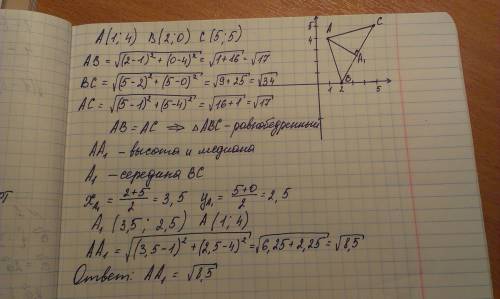 A(1;4) B(2;0) C(5;5)
AB = √((2-1)² + (0-4)²) = √(1+16) = √17
BC = √((5-2)² + (5-0)²) = √(9+25) = √34
AC = √((5-1)² + (5-4)²) = √(16+1) = √17
AB = AC ⇒ △ABC - равнобедренный
AA₁ - высота и медиана
A₁ - середина BC
x_A₁ = (2+5)/2 = 3,5 y_A₁ = (5+0)/2 = 2,5
A₁(3,5; 2,5) A(1;4)
AA₁ = √((3,5-1)² + (2,5-4)²) = √(6,25+2,25) = √8,5
Ответ: AA₁ = √8,5
5
4
A
C
A₁
B
1 2 5